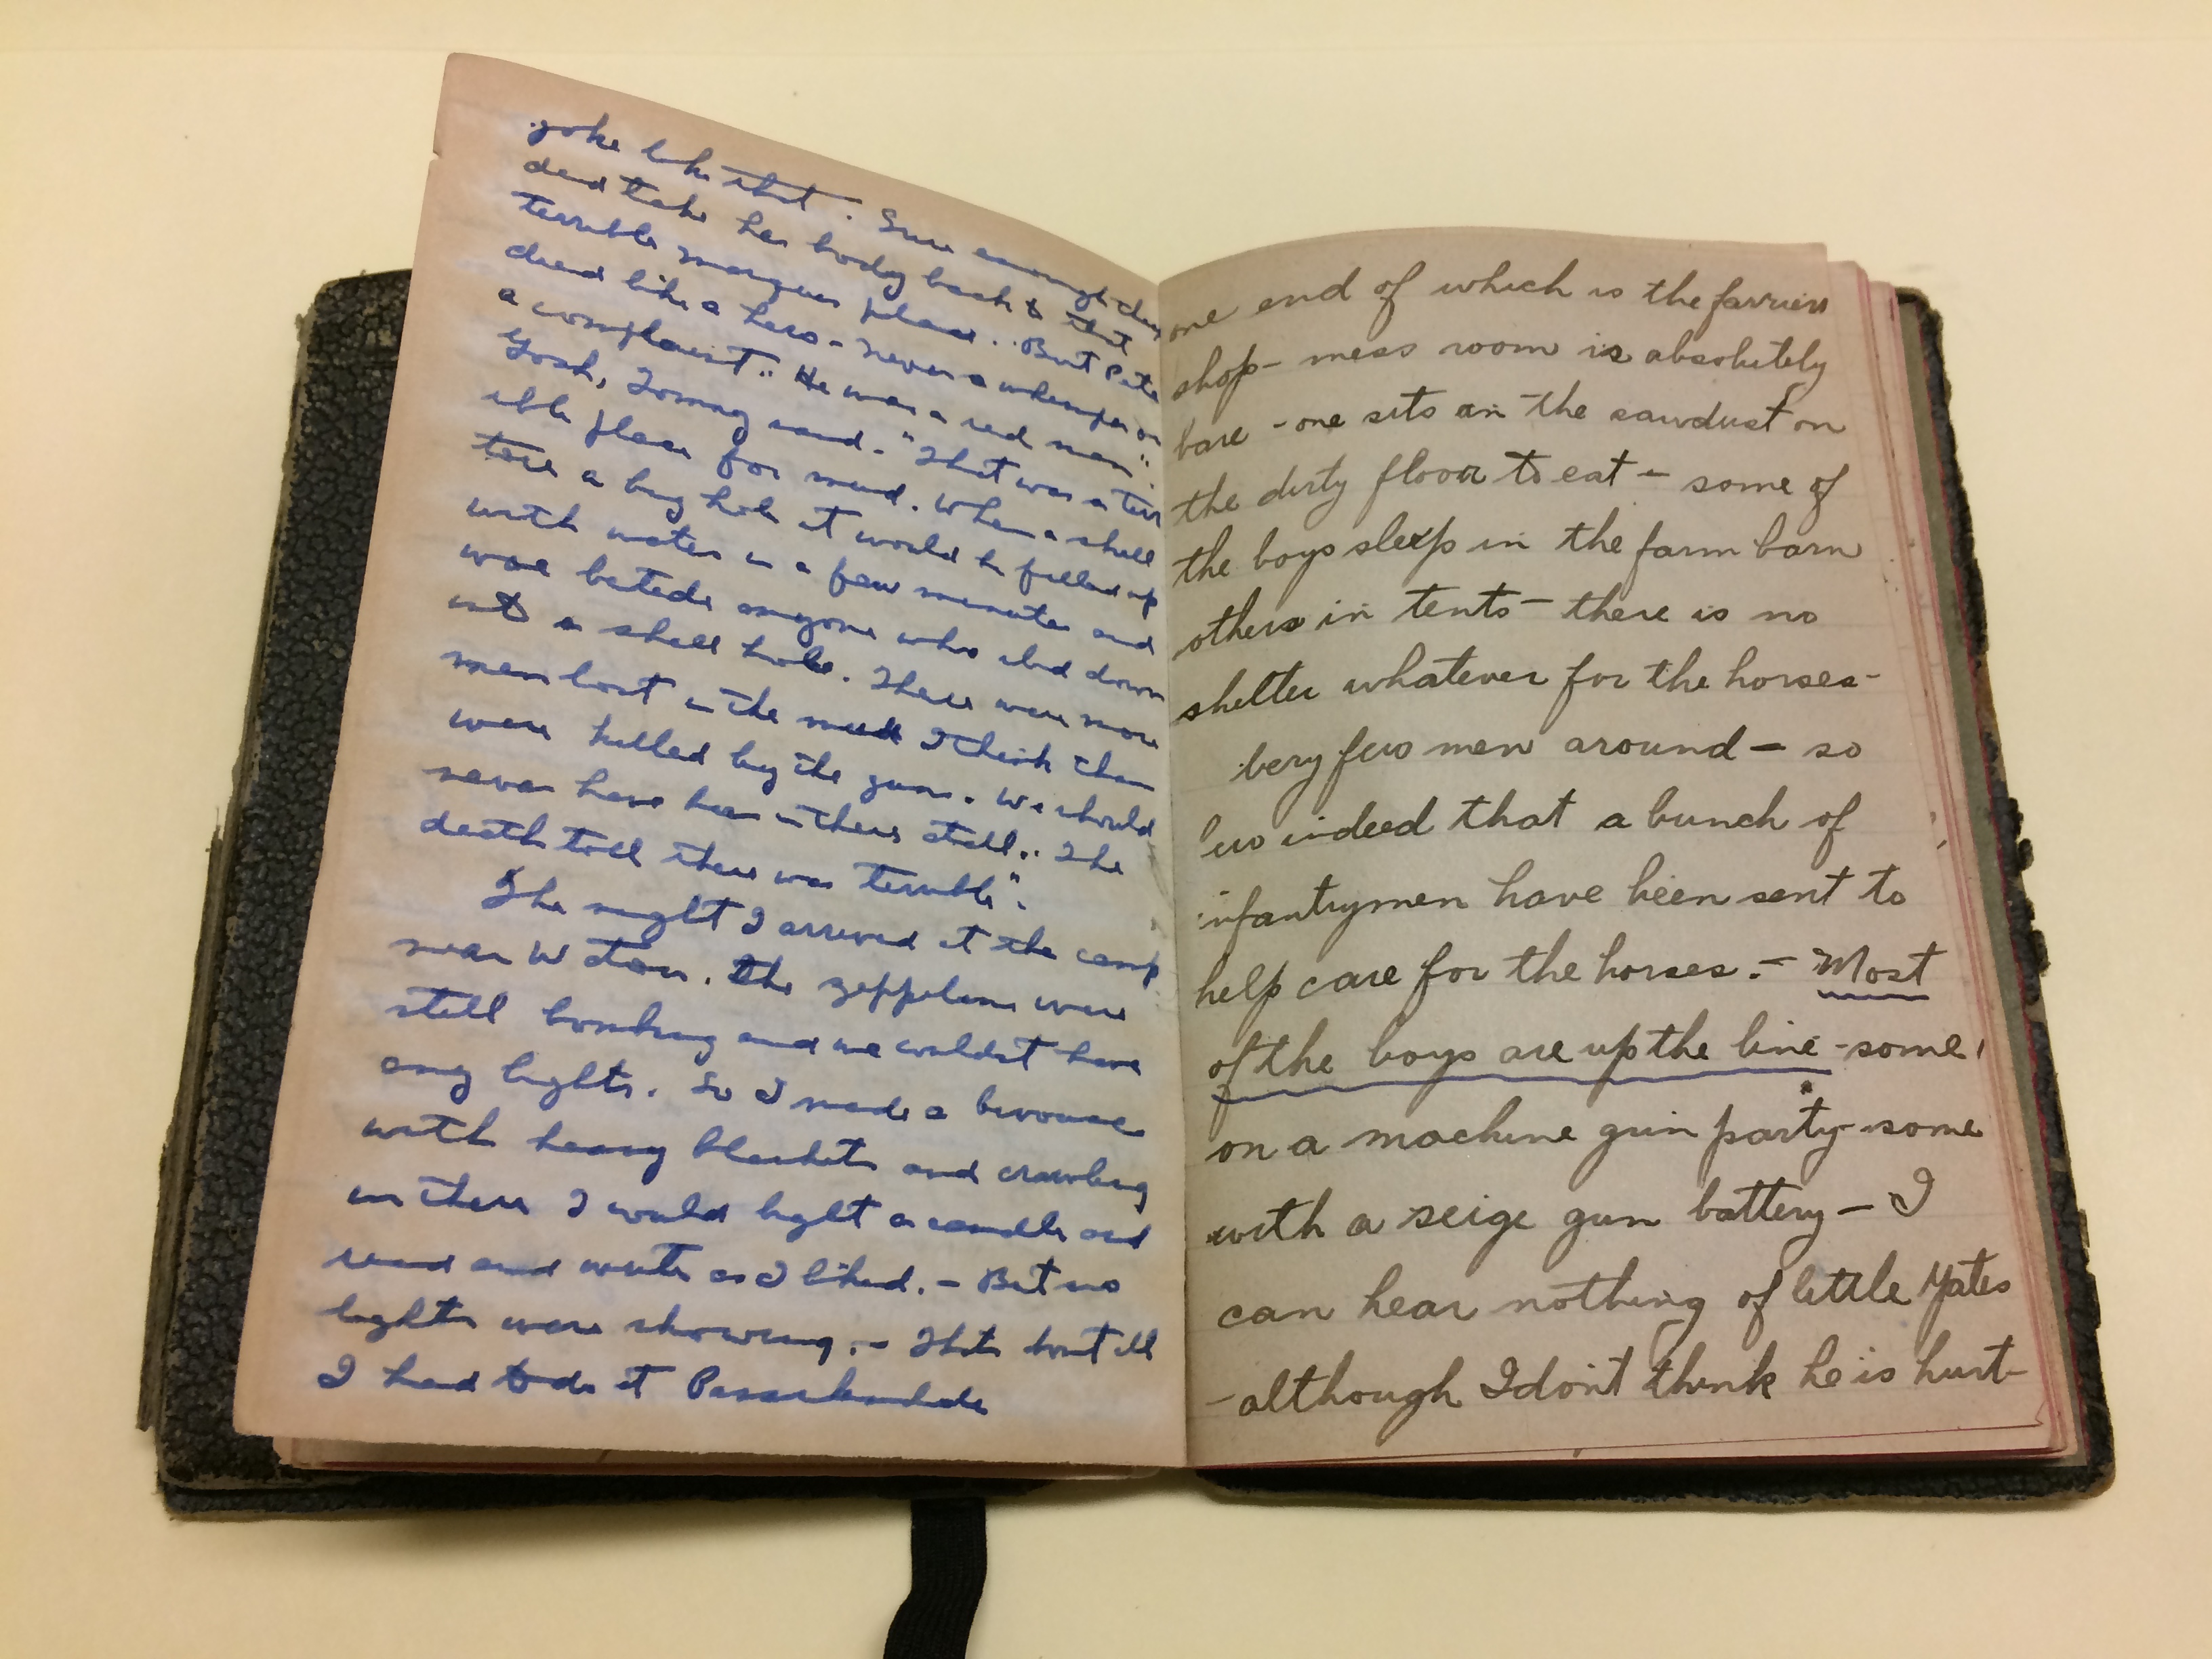 joke like that. Sure enough they
did take his body back to that
terrible morgue place.. But Pete
died like a hero - never a whimper or
a complaint.. He was a red man..
Gosh, Tommy said. "That was a terr
ible place for mud. When a shell
tore a big hole it would be filled up
with water in a few minutes and
woe betide anyone who slid down
into a shell hole. There were more
men lost in the mud I think than
were killed by the guns. We should
never have been in there at all.. The
death toll there was terrible".
The night I arrived at the camp
near the zeppelins were
still bombing and we couldn't have
any lights. So I made a bivouac
with heavy blankets and crawling
in there I would light a candle and
read and write as I liked. - But no
lights were showing. - That's about all
I had to do at Passchendale
one end of which is the farriers
shop - mess room is absolutely
bare - one sits on the sawdust on
the dirty floor to eat - some of
the boys sleep in the farm barn
others in tents - there is no
shelter whatever for the horses -
very few men around - so
few indeed that a bunch of
infantrymen have been sent to
help care for the horses. - Most
of the boys are up the line - some
on a machine gun party - some
with a seige gun battery - I
can hear nothing of little Yates
- although I don't think he is hurt -